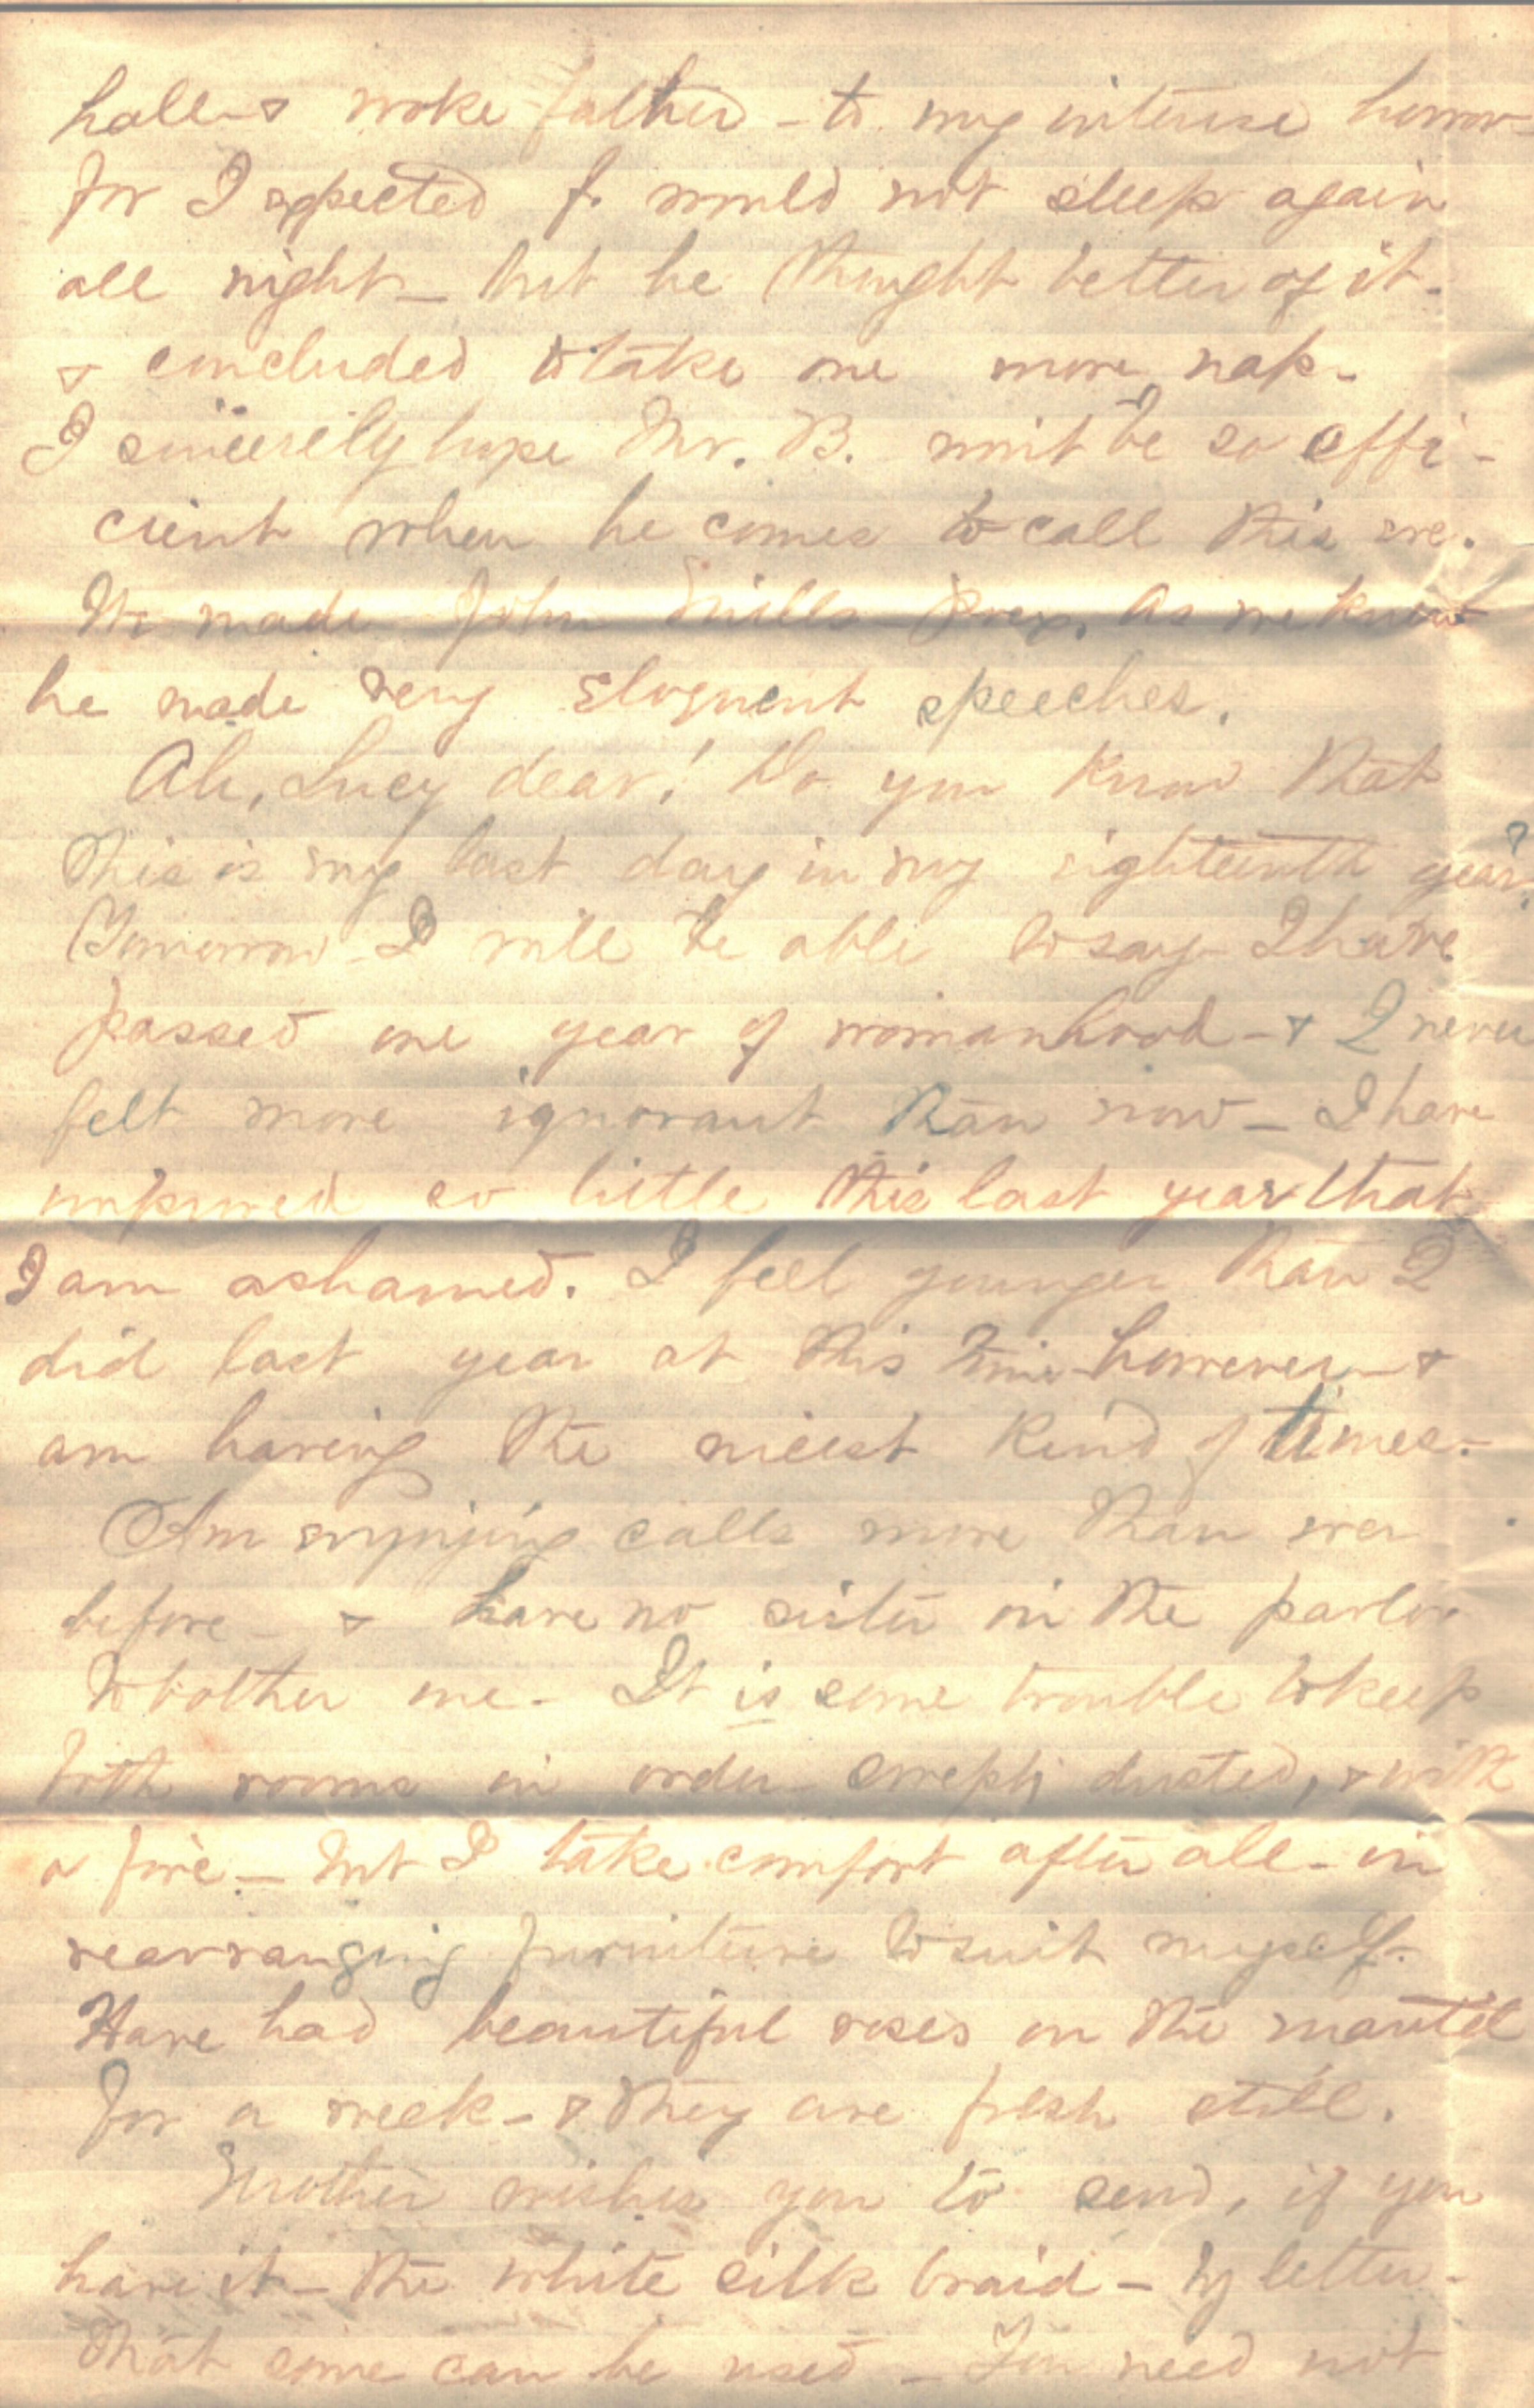 hall & woke father - to my intense horror
for I expected f. would not sleep again
all night - but he thought better of it -
& concluded to take one more nap -
I sincerelly hope Mr. B. wont be so effi-
cient when he comes to call this eve.
We made John Mills Pres. as we knew
he made very eloquent speeches.
Ah, Lucy dear! Do you know that
this is my last day in my eighteenth year?
Tomorrow I will be able to say I have
passed one year of womanhood - & I never
felt more ignorant than now - I have
improved so little this last year that
I am ashamed. I feel younger than I
did last year at this time however - &
am having the nicest kind of times -
Am enjoying calls more than ever
before - & have no sister in the parlor
to bother me - It is some trouble to keep
both rooms in order swept, dusted, & with
a fire - but I take comfort after all - in
rearranging furniture to suit myself -
Have had beautiful roses on the mantel
for a week - & they are fresh still.
Mother wishes you to send, if you
have it - the white silk braid - by letter -
that some can be used - You need not